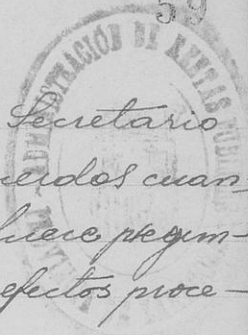 59
ADMINISTRACIÓN DE RENTAS
Secretario
cuerdos cuan-
hiere pregun-
efectos proce-